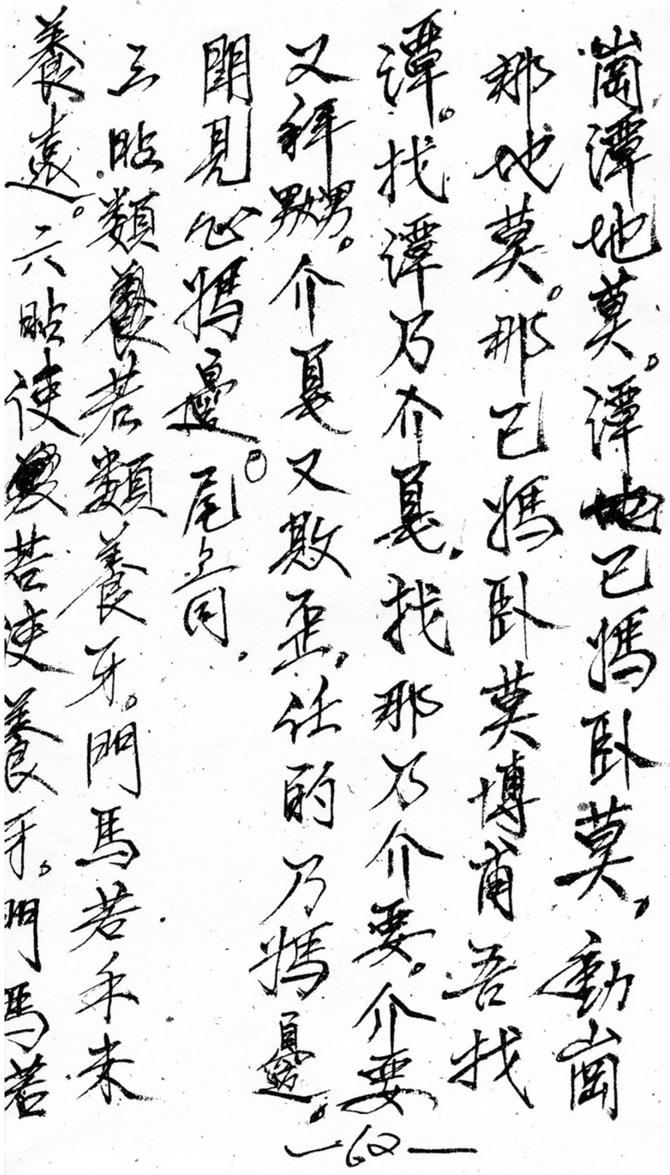 崗潭地莫。潭地已媽卧莫。動崗
那地莫。那已媽卧莫博甫吾找
潭。找潭乃介戛。找那乃介要。介要
又拜。介戛又敗歪。任的乃媽邊。
聞見屲媽邊。尾上同。
三貼類養若類養牙。門馬若年未
養遠。六貼使若使養牙。門馬若
—62—